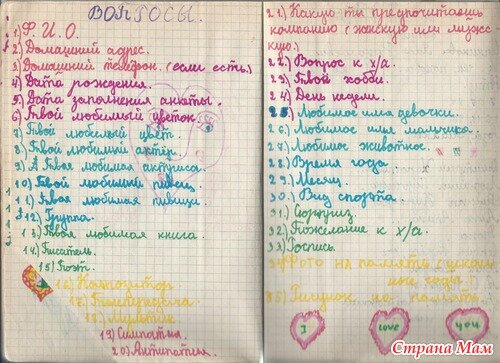 ВОПРОСЫ.
1) Ф. И. О.
2) Домашний адрес.
3) Домашний телефон. (если есть.)
4) Дата рождения.
5) Дата заполнения анкеты.
6) Твой любимый цветок.
7) Твой любимый цвет.
8) Твой любимый актёр.
9) А Твоя любимая актриса.
10) Твой любимый певец.
11) Твоя любимая певица.
12) Группа.
13) Твоя любимая книга.
14) Писатель.
15) Поэт.
16) Композитор
17) Телепередача.
18) Мультик
19) Симпатия.
20) Антипатия.
21.) Какую ты предпочитаешь
компанию (женскую или мужс
кую.)
22.) Вопрос к х/а.
23.) Твой хобби.
24) День недели.
25.) Любимое имя девочки.
26.) Любимое имя мальчика.
27.) Любимое животное.
28.) Время года
29.) Месяц.
30.) Вид спорта.
31.) Сюрприз
32.) Пожелание к х/а.
33.) Роспись.
34) Фото на память (школь
ные года)
35) Рисунок на память
I LOVE YOU
Страна Мам